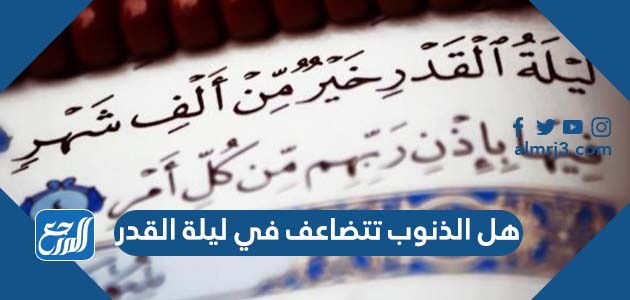 لَيْلَةُ ٱلْقَدْرِ خَيْرٌ مِّنْ أَلْفِ شَهْرٍ
فِيهَا بِإِذْنِ رَبِّهِم مِّن كُلِّ أَمْرٍ
almrj3.com
هل الذنوب تتضاعف في ليلة القدر
المرجع